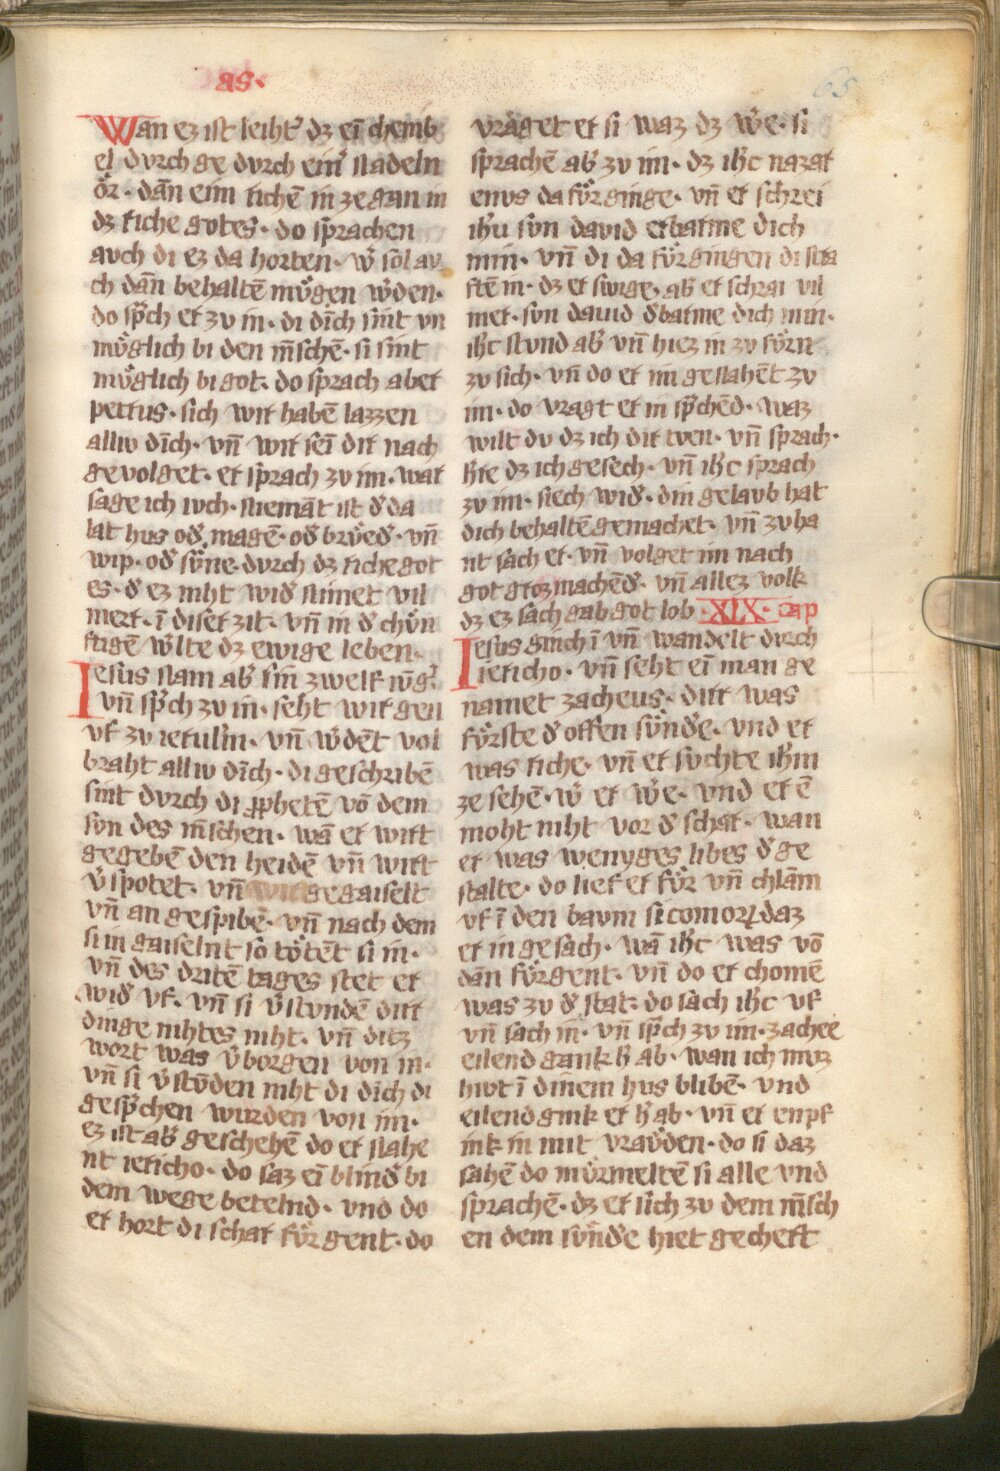 as·
65
Wan ez ist leiht͛ dz ein chemb
el dvrch ge dvrch ein͛ nadeln
ôr· dan̄ eim richē in ze gan in
dz riche gotes· do sprachen
avch di ez da horten· w͛ sol av
ch dan̄ behaltē mvͦgen w͛den·
do sp͛ch er zv in· di dīch sint vn
mvͦglich bi den m̄schē· si sint
mvͦglich bi got· do sprach aber
petrus· sich wir habē lazzen
alliv dīch· vn̄ wir seī dir nach
gevolget· er sprach zv im· war
sage ich ivch· niemāt ist d͛ da
lat hus od͛ magē· od͛ brvͤd͛· vn̄
wip· od͛ svͤne· dvrch dz riche got
es· d͛ ez niht wid͛ nimet vil
mert· ī diser zit· vn̄ in d͛ chvͤn
ftigē w͛lte dz ewige leben·
Iesus nam ab͛ sin zwelf ivng͛
vn̄ sp͛ch zv in· seht wir gen
vf zv ierusl̄m· vn̄ w͛dēt vol
braht alliv dīch· di geschribē
sint dvrch di ꝓphetē vō dem
svn des m̄schen· wā er wirt
gegebē den heidē vn̄ wirt
v͛spotet· vn̄ wirt gegaiselt
vn̄ an gespibē· vn̄ nach dem
si in gaiselnt so toͤtēt si in·
vn̄ des dritē tages stet er
wid͛ vf· vn̄ si v͛stvndē dirr
dinge nihtes niht· vn̄ ditz
wort was v͛borgen von in·
vn̄ si v͛stōden niht di dīch di
gesp͛chen wurden von im·
ez ist ab͛ geschehē do er nahe
nt iericho· do saz eī blind͛ bi
dem wege betelnd· vnd do
er hort di schar fvͤrgent· do
vraget er si waz dz w͛e· si
sprachē ab͛ zv im· dz ih̄c nazar
enus da fvͤrginge· vn̄ er schrei
ih̄u svn david erbarme dich
min· vn̄ di da fvͤrgingen di stra
ftē in· dz er swige· ab͛ er schrai vil
mer· svn david d͛barme dich min·
ih̄c stvnd ab͛ vn̄ hiez in zv fvͤrn
zv sich· vn̄ do er im genahēt zv
im· do vragt er in sp͛chēd· waz
wilt dv dz ich dir tven· vn̄ sprach·
h͛re dz ich gesech· vn̄ ih̄c sprach
zv im· siech wid͛· din gelavb hat
dich behaltē gemachet· vn̄ zvha
nt sach er· vn̄ volget im nach
got groz machēd͛· vn̄ allez volk
dz ez sach gab got lob ·XIX· cap
Iesus ginch ī vn̄ wandelt dvrch
iericho· vn̄ seht eī man ge
namet zacheus· dirr was
fvͤrste d͛ offen svͤnd͛e· vnd er
was riche· vn̄ er svchte ih̄m
ze sehē· w͛ er w͛e· vnd er ē
moht niht vor d͛ schar· wan
er was wenyges libes d͛ ge
stalte· do lief er fvͤr vn̄ chlam
vf ī den bavm sicomorꝝ daz
er in gesach· wā ih̄c was vō
dan̄ fvͤrgent· vn̄ do er chomē
was zv d͛ stat· do sach ih̄c vf
vn̄ sach in· vn̄ sp͛ch zv im· zachee
eilend gank h͛ ab· wan ich mvz
hivt ī dinem hus blibē· vnd
eilend gink er h͛ ab· vn̄ er enpf
ink in mit vravͤden· do si daz
sahē do mvͤrmeltē si alle vnd
sprachē· dz er sich zv dem m̄sch
en dem svͤnd͛e hiet gechert